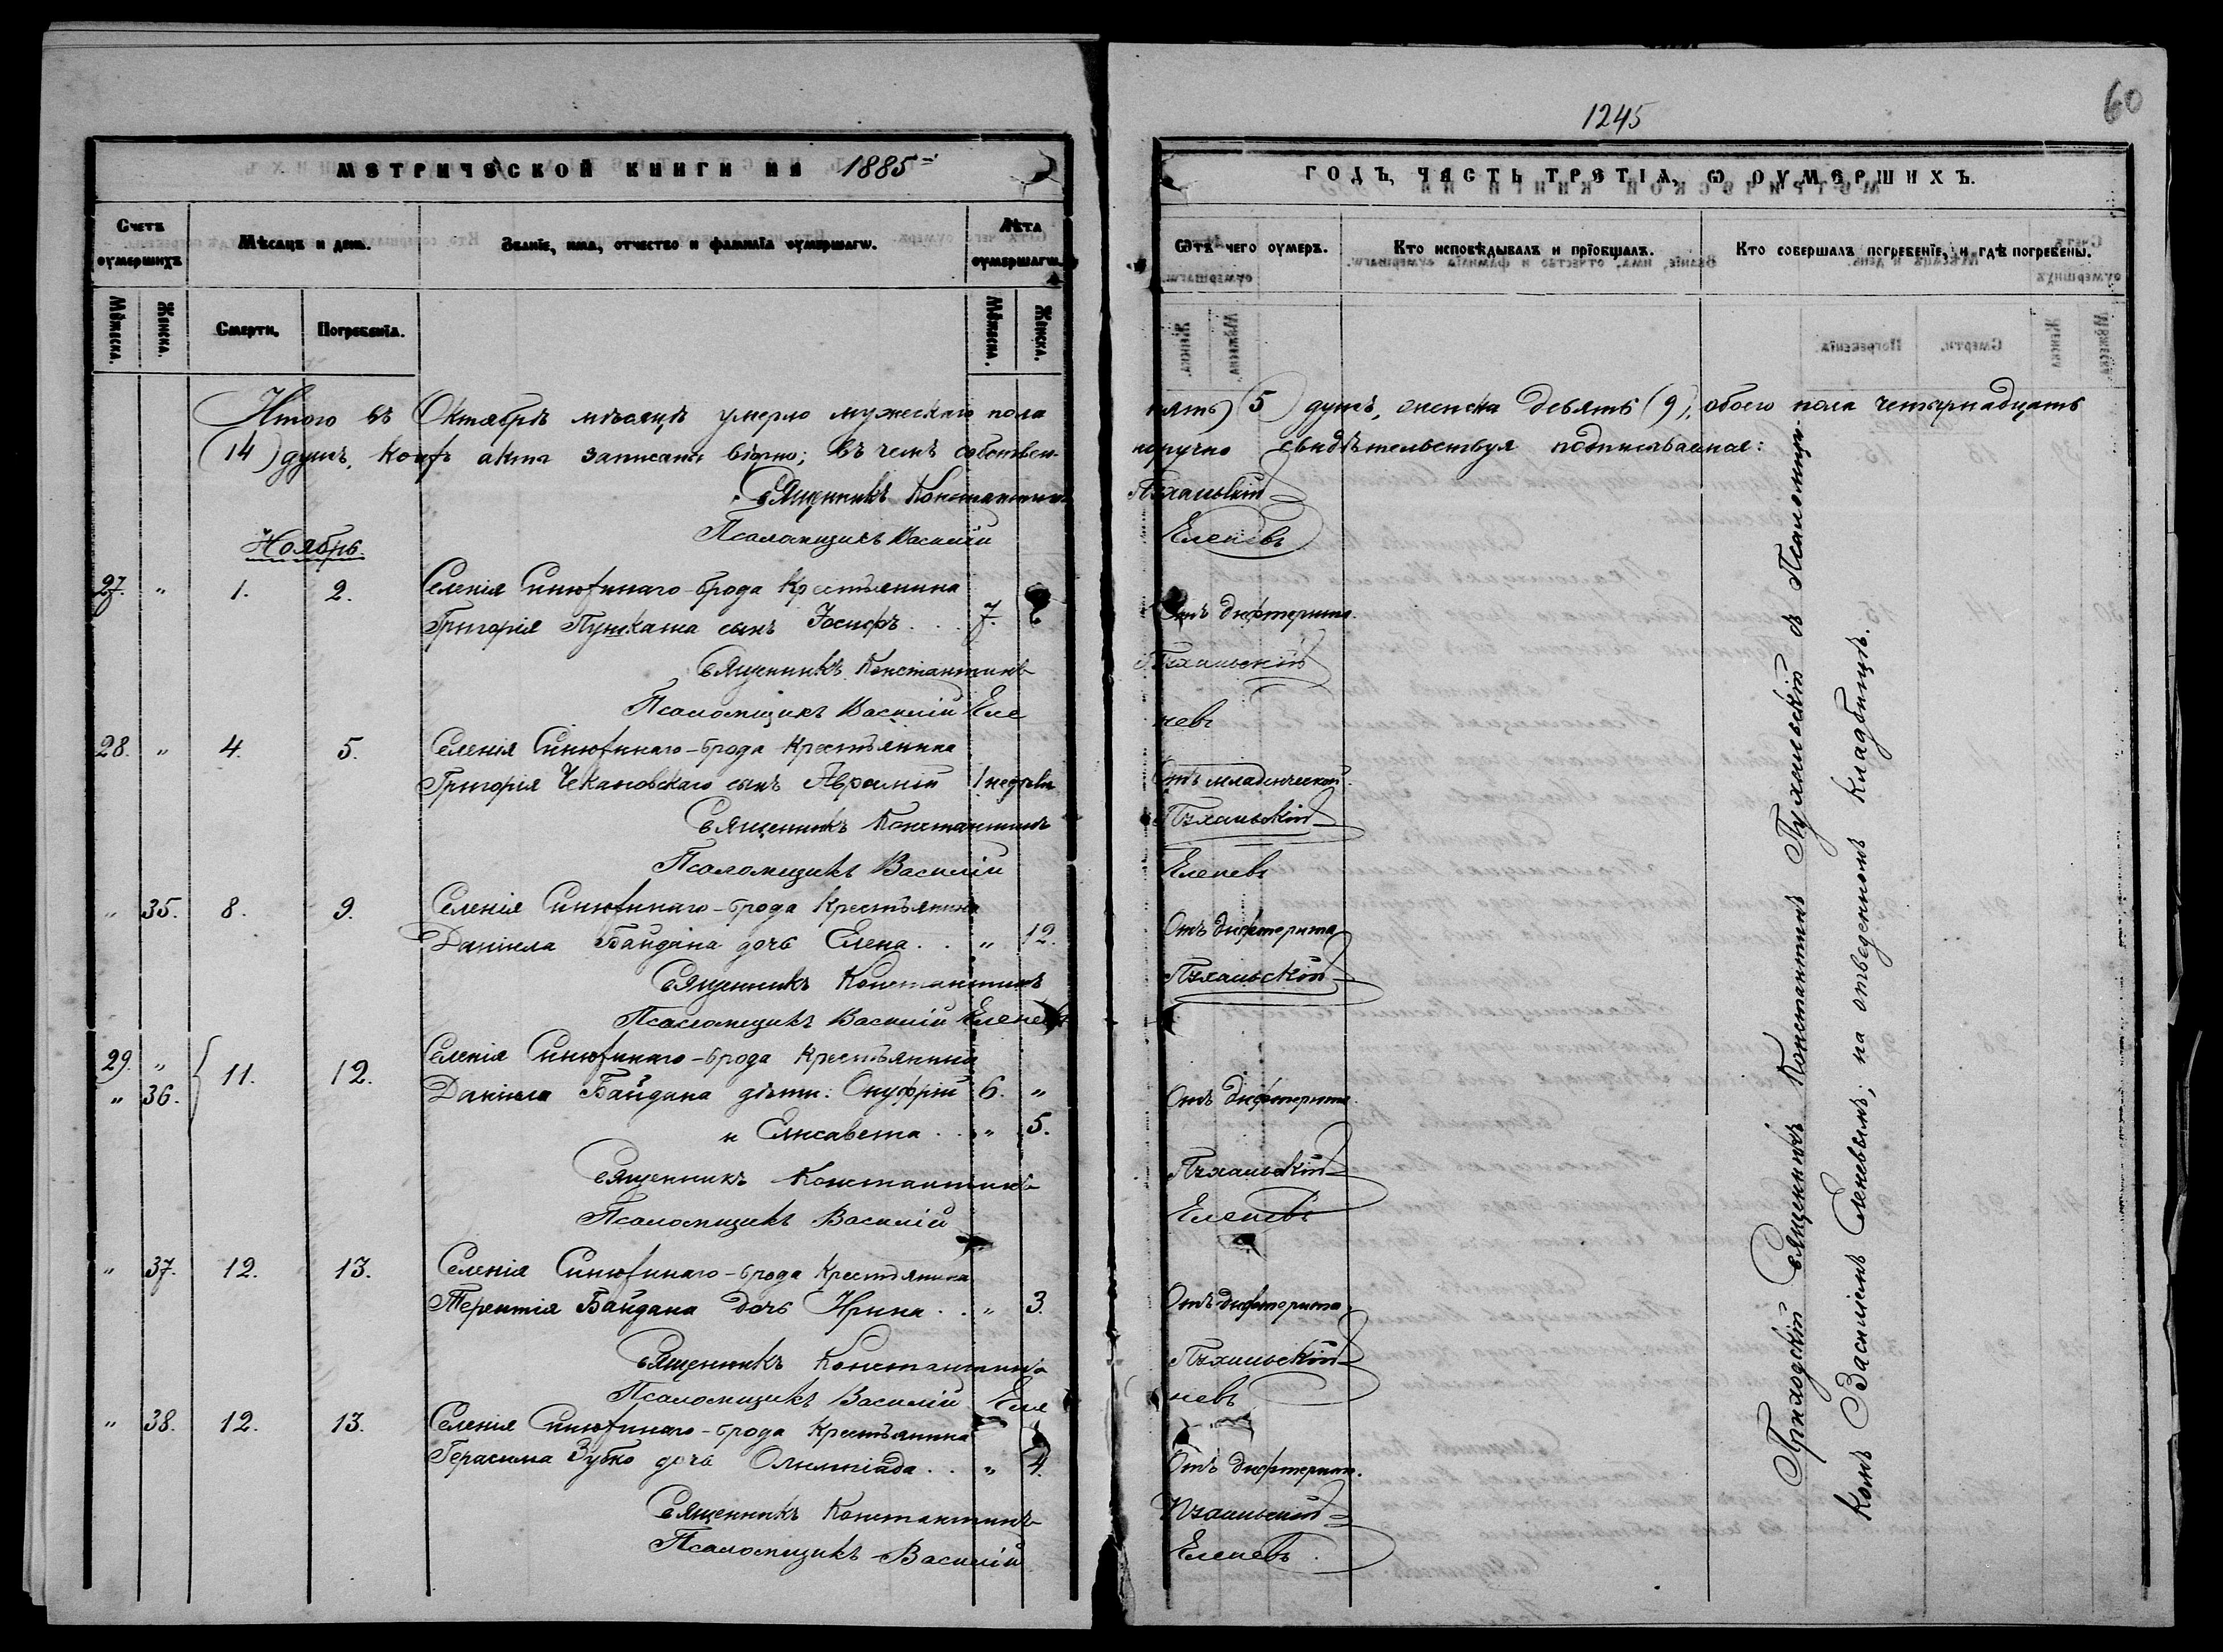 МЕТРИЧЕСКОЙ КНИГИ НА 1885й
Счетъ оумершихъ
Мѣсяцъ и день.
Званїе, имѧ, отчество и фамилїѧ оумершагѡ.
Лѣта оумершагѡ.
Мꙋжеска.
Женска.
Смерти.
Погребенїѧ.
Мꙋжеска.
Женска.
Итого въ Октябрѣ мѣсяцѣ умерло мужескаго пола
(14) душъ, коихъ акты записаны вѣрно; въ чемъ собствен-
Священникъ Константинъ
Псаломщикъ Василій
Ноябрь.
27. " 1. 2. Селенія Синюхинаго-брода крестьянина
Григорія Пушкаша сынъ Іосифъ . . . 7.
Священникъ Константинъ
Псаломщикъ Василій Еле
28. " 4. 5. Селенія Синюхинаго-брода крестьянина
Григорія Чекановскаго сынъ Аврамій 1 недѣли
Священникъ Константинъ
Псаломщикъ Василій
" 35. 8. 9. Селенія Синюхинаго-брода крестьянина
Даніила Байдана дочь Елена . . " 12.
Священникъ Константинъ
Псаломщикъ Василій Еленевъ
29. " 11. 12. Селенія Синюхинаго-брода крестьянина
" 36. Даніила Байдана дѣти: Онуфрій 6. "
и Елисавета . . " 5.
Священникъ Константинъ
Псаломщикъ Василій
" 37. 12. 13. Селенія Синюхинаго-брода крестьянина
Терентія Байдана дочь Ирина . . " 3.
Священникъ Константинъ
Псаломщикъ Василій Еле
" 38. 12. 13. Селенія Синюхинаго-брода крестьянина
Герасима Зубко дочь Олимпіада . . " 4.
Священникъ Константинъ
Псаломщикъ Василій
1245
60
ГОДЪ, ЧАСТЬ ТРЕТІѦ, Ѡ ОУМЕРШИХЪ.
Ѿтъ чего оумеръ.
Кто исповѣдывалъ и прїобщалъ.
Кто совершалъ погребенїе, и гдѣ погребены.
пять (5) душъ, женска девять (9), обоего пола четырнадцать
норучно свидѣтельствуя подписываемся:
Пухальскій
Еленевъ
Отъ дифтерита.
Пухальскій
невъ
Отъ младенческой.
Пухальскій
Еленевъ
Отъ дифтерита
Пухальскій
Отъ дифтерита.
Пухальскій
Еленевъ
Отъ дифтерита.
Пухальскій
невъ
Отъ дифтерита.
Пухальскій
Еленевъ.
Приходскій Священникъ Константинъ Пухальскій съ Псаломщи-
комъ Василіемъ Еленевымъ; на отведенномъ кладбищѣ.